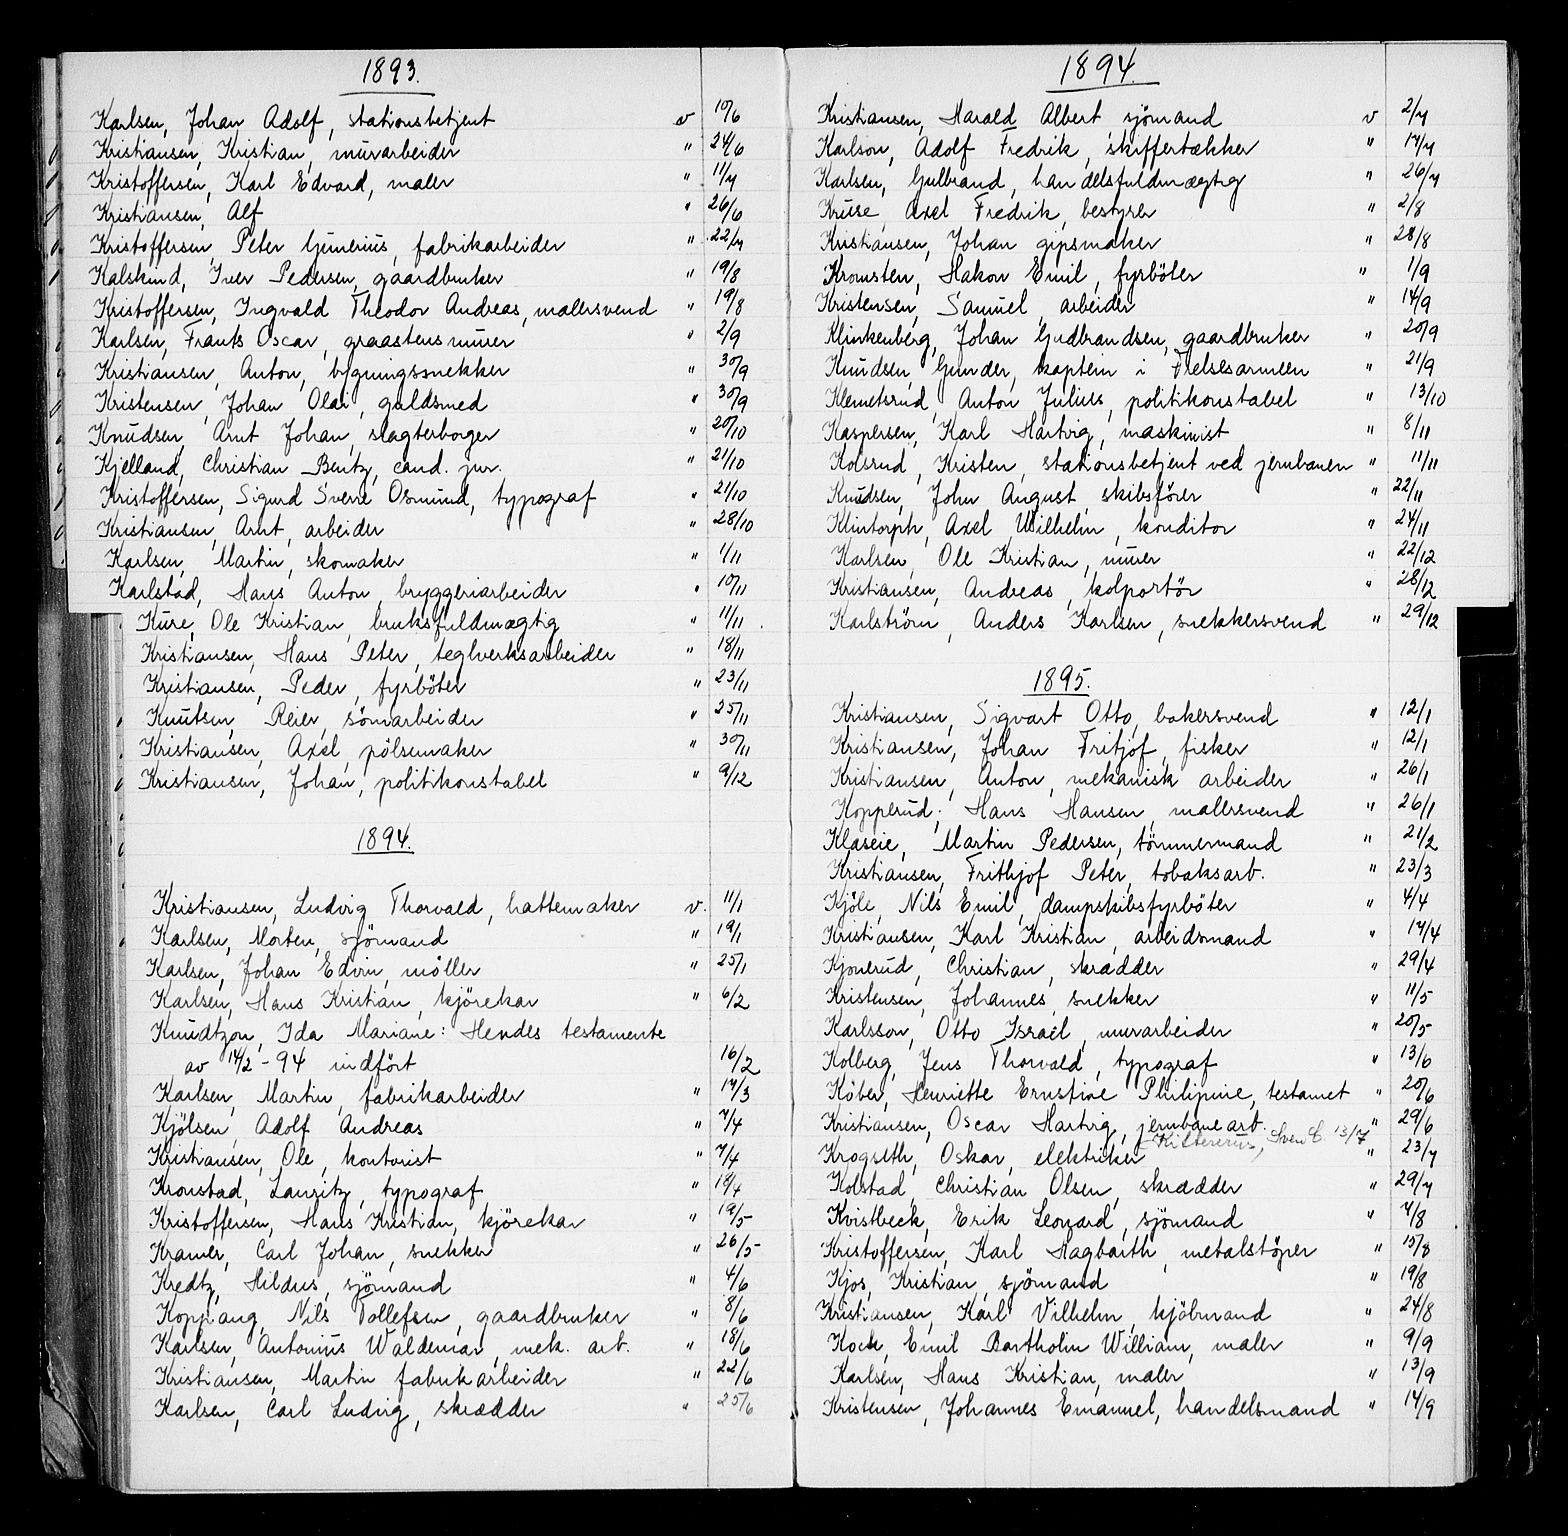 1893.
Karlsen, Johan Adolf, stationsbetjent v 10/6
Kristiansen, Kristian, murarbeider " 24/6
Kristoffersen, Karl Edvard, maler " 11/7
Kristiansen, Alf " 26/6
Kristoffersen, Peter Gunerius, fabrikarbeider " 22/7
Kalskind, Iver Pedersen, gaardbruker " 19/8
Kristoffersen, Ingvald Theodor Andreas, malersvend " 19/8
Karlsen, Frants Oscar, graastensmurer " 2/9
Kristiansen, Anton, bygningssnekker " 30/9
Kristensen, Johan Olai, guldsmed " 30/9
Knudsen, Arnt Johan, slagterborger " 20/10
Kjelland, Christian Bentz, cand. jur. " 21/10
Kristoffersen, Sigurd Sverre Osmund, typograf " 21/10
Kristiansen, Arnt, arbeider " 28/10
Karlsen, Martin, skomaker " 1/11
Karlstad, Hans Anton, bryggeriarbeider " 10/11
Kure, Ole Kristian, bruksfuldmægtig " 11/11
Kristiansen, Hans Peter, teglverksarbeider " 18/11
Kristiansen, Peder, fyrböter " 23/11
Knutsen, Reier, sömarbeider " 25/11
Kristiansen, Axel, pölsemaker " 30/11
Kristiansen, Johan, politikonstabel " 9/12
1894.
Kristiansen, Ludvig Thorvald, hattemaker v. 11/1
Karlsen, Morten, sjömand " 19/1
Karlsen, Johan Edvin, möller " 25/1
Karlsen, Hans Kristian, kjörekar " 6/2
Knudtzon, Ida Mariane: Hendes testamente
av 14/2 - 94 indfört 16/2
Karlsen, Martin, fabrikarbeider " 17/3
Kjölsen, Adolf Andreas " 7/4
Kristiansen, Ole, kontorist " 7/4
Kronstad, Lauritz, typograf " 18/4
Kristoffersen, Hans Kristian, kjörekar " 19/5
Kramer, Carl Johan, snekker " 26/5
Kredtz, Hildus, sjömand " 4/6
Koppang, Nils Tollefsen, gaardbruker " 8/6
Karlsen, Antonius Waldemar, mek. arb. " 18/6
Kristiansen, Martin fabrikarbeider " 22/6
Karlsen, Carl Ludvig, skrædder " 25/6
1894.
Kristiansen, Harald Albert sjömand v 2/7
Karlson, Adolf Fredrik, skiffertækker " 17/7
Karlsen, Gulbrand, handelsfuldmægtig " 26/7
Kruse, Axel Fredrik, bestyrer " 2/8
Kristiansen, Johan gipsmaker " 28/8
Kromsten, Hakon Emil, fyrböter " 1/9
Kristensen, Samuel, arbeider " 14/9
Klinkenberg, Johan Gudbrandsen, gaardbruker " 20/9
Knudsen, Gunder, kaptein i Frelsesarmeen " 21/9
Klemetsrud, Anton Julius, politikonstabel " 13/10
Kaspersen, Karl Hartvig, maskinist " 8/11
Kolsrud, Kristen, stationsbetjent ved jernbanen " 11/11
Knudsen, John August, skibsförer " 22/11
Klintorph, Axel Wilhelm, konditor " 24/11
Karlsen, Ole Kristian, murer " 22/12
Kristiansen, Andreas, kolportör " 28/12
Karlström, Anders Karlsen, snekkersvend " 29/12
1895.
Kristiansen, Sigvart Otto, bakersvend " 12/1
Kristiansen, Johan Fritjof, fisker " 12/1
Kristiansen, Anton, mekanisk arbeider " 26/1
Kopperud, Hans Hansen, malersvend " 26/1
Klaseie, Martin Pedersen, tömmermand " 21/2
Kristiansen, Frithjof Peter, tobaksarb. " 23/3
Kjöle, Nils Emil, dampskibsfyrböter " 4/4
Kristiansen, Karl Kristian, arbeidsmand " 17/4
Kjonerud, Christian, skrædder " 29/4
Kristensen, Johannes, snekker " 11/5
Karlsson, Otto Israel, murarbeider " 20/5
Kolberg, Jens Thorvald, typograf " 13/6
Köber, Henriette Ernstine Philipine, testamet " 20/6
Kristiansen, Oscar Hartvig, jernbanearb. " 29/6
Sven C. 13/7
Krogseth, Oskar, elektriker " 23/7
Kolstad, Christian Olsen, skrædder " 29/7
Kvistbeck, Erik Leonard, sjömand " 7/8
Kristoffersen, Karl Hagbarth, metalstöper " 15/8
Kjos, Kristian, sjömand " 19/8
Kristiansen, Karl Vilhelm, kjöbmand " 24/8
Kock, Emil Bartholin William, maler " 9/9
Karlsen, Hans Kristian, maler " 13/9
Kristensen, Johannes Emanuel, handelsmand " 14/9